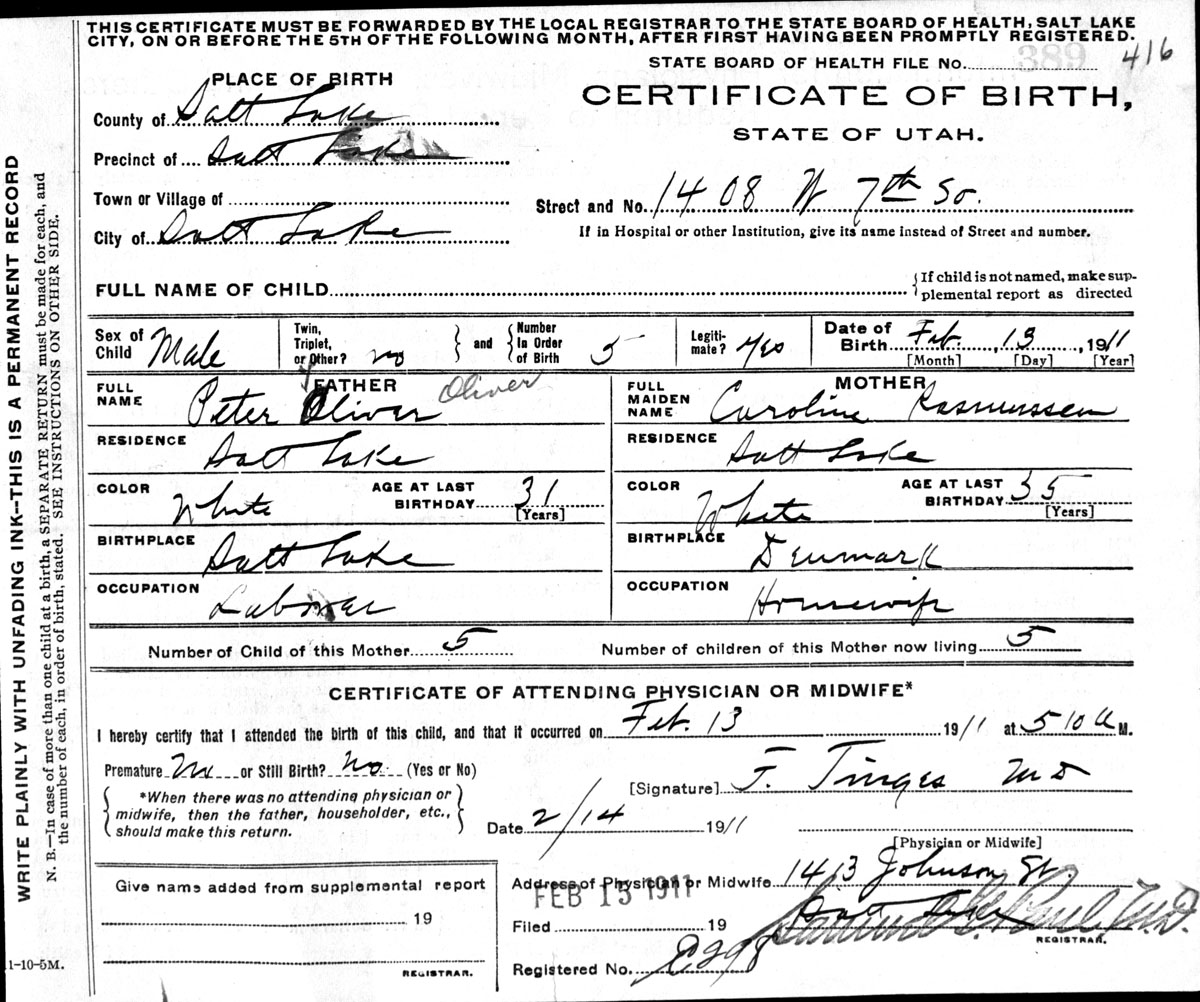 THIS CERTIFICATE MUST BE FORWARDED BY THE LOCAL REGISTRAR TO THE STATE BOARD OF HEALTH, SALT LAKE
CITY, ON OR BEFORE THE 5TH OF THE FOLLOWING MONTH, AFTER FIRST HAVING BEEN PROMPTLY REGISTERED.
416
STATE BOARD OF HEALTH FILE No. 389
CERTIFICATE OF BIRTH,
STATE OF UTAH.
PLACE OF BIRTH
County of Salt Lake
Precinct of Salt Lake
Town or Village of
City of Salt Lake
Street and No. 1408 W 7th So.
If in Hospital or other Institution, give its name instead of Street and number.
FULL NAME OF CHILD
{If child is not named, make sup-
plemental report as directed
Sex of Child Male
Twin, Triplet, or Other? no
and
Number In Order of Birth 5
Legiti-mate? Yes
Date of Birth Feb. 13, 1911
[Month] [Day] [Year]
FATHER
FULL NAME Peter Oliver Oliver
RESIDENCE Salt Lake
COLOR White
AGE AT LAST BIRTHDAY 31
[Years]
BIRTHPLACE Salt Lake
OCCUPATION Laborer
MOTHER
FULL MAIDEN NAME Caroline Rasmussen
RESIDENCE Salt Lake
COLOR White
AGE AT LAST BIRTHDAY 35
[Years]
BIRTHPLACE Denmark
OCCUPATION Housewife
Number of Child of this Mother 5
Number of children of this Mother now living 5
CERTIFICATE OF ATTENDING PHYSICIAN OR MIDWIFE*
I hereby certify that I attended the birth of this child, and that it occurred on Feb. 13 1911 at 5 10 a M.
Premature No or Still Birth? No (Yes or No)
{*When there was no attending physician or
midwife, then the father, householder, etc.,
should make this return.}
[Signature] F. Tinges MD
Date 2/14 1911
[Physician or Midwife]
Address of Physician or Midwife 1413 Johnson St.
Salt Lake
FEB 15 1911
Filed 19
REGISTRAR.
Registered No.
Give name added from supplemental report
19
REGISTRAR.
1-10-5M.
WRITE PLAINLY WITH UNFADING INK—THIS IS A PERMANENT RECORD
N. B.—In case of more than one child at a birth, a SEPARATE RETURN must be made for each, and
the number of each, in order of birth, stated. SEE INSTRUCTIONS ON OTHER SIDE.